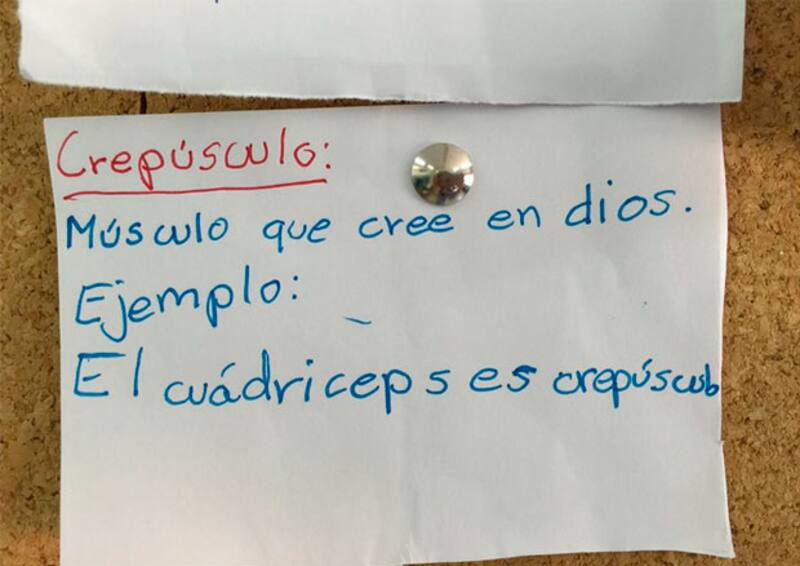 Crepúsculo:
Músculo que cree en dios.
Ejemplo:
El cuádriceps es crepúsculo